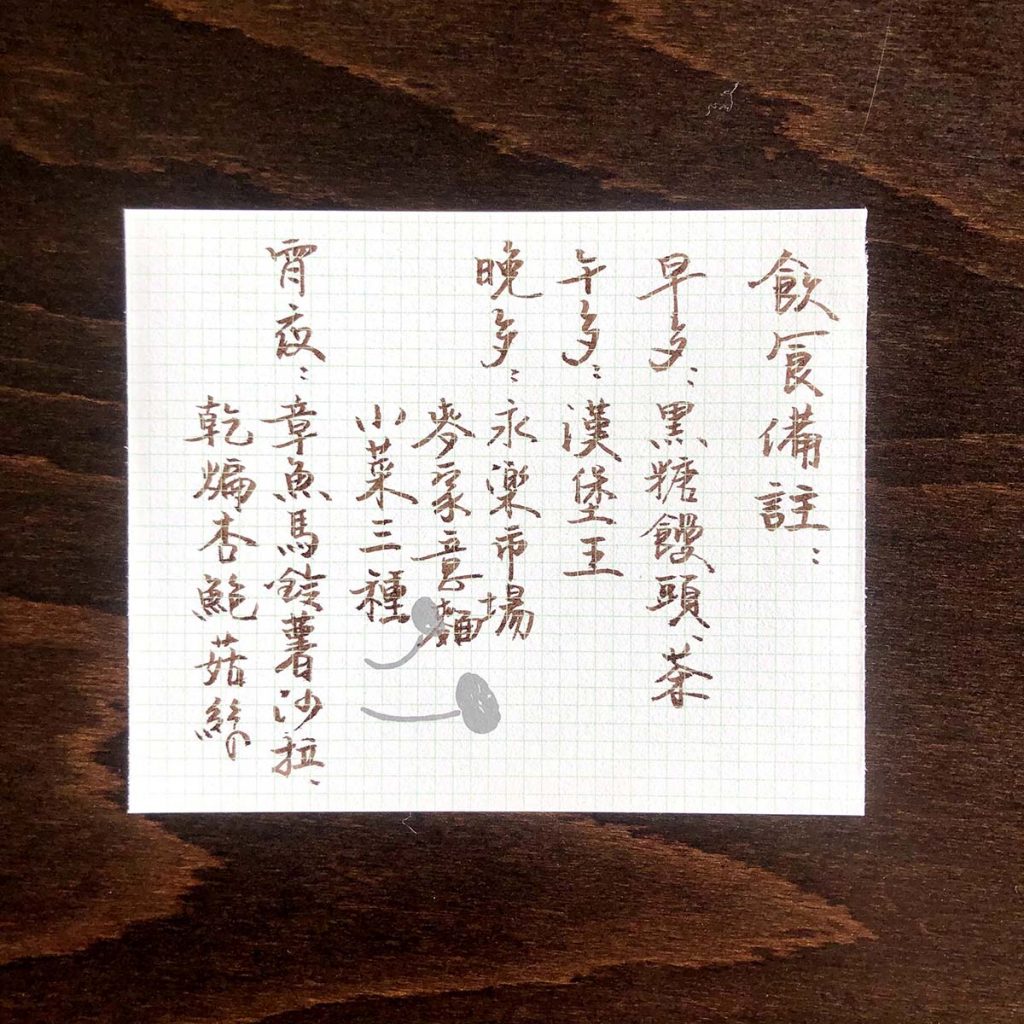 飲食備註：
早歺：黑糖饅頭、茶
午歺：漢堡王
晚歺：永楽市場
麥家意麵
小菜三種
宵夜：章魚馬鈴薯沙拉、
乾煸杏鮑菇絲。